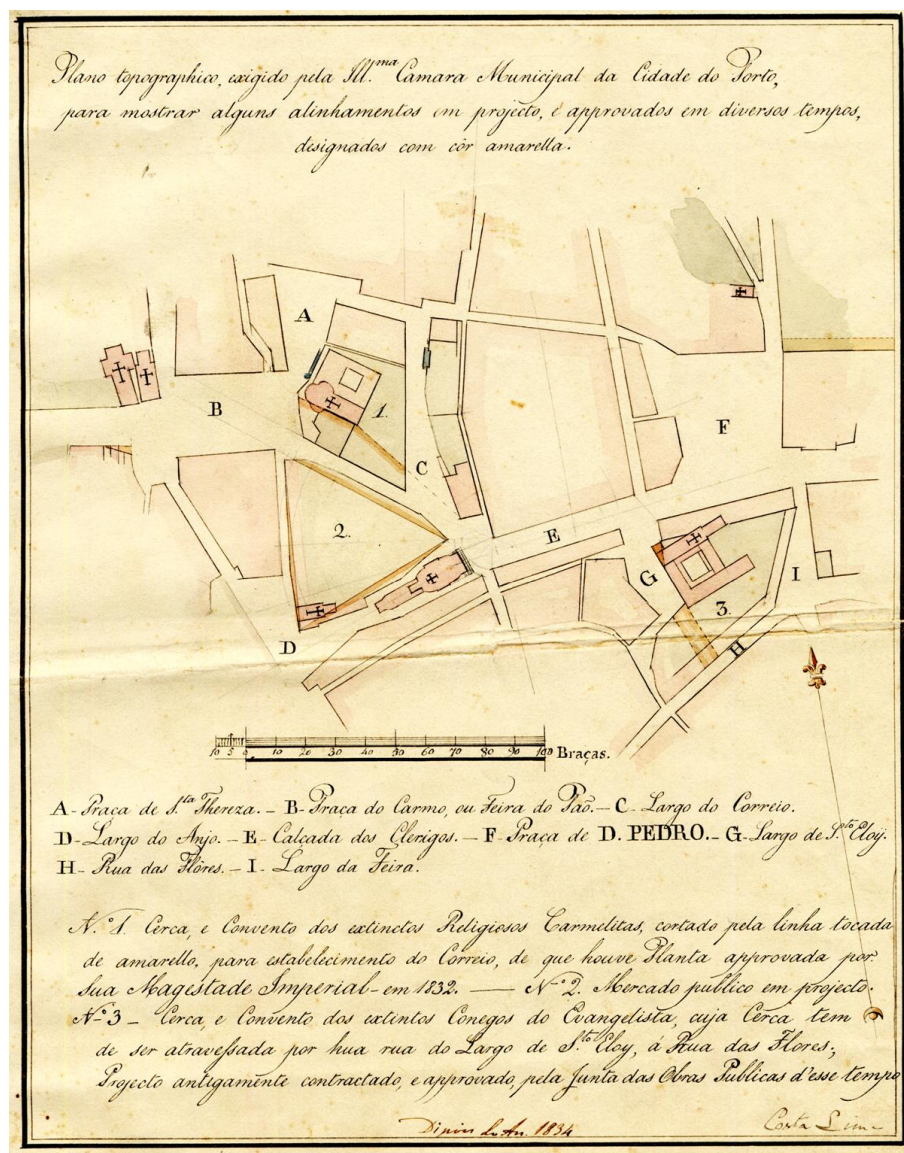 Plano topographico, exigido pela Ill.ma Camara Municipal da Cidade do Porto,
para mostrar alguns alinhamentos em projecto, e approvados em diversos tempos,
designados com côr amarella.
A
B
1.
C
F
2.
E
G
I
3.
H
D
10 5 0 10 20 30 40 50 60 70 80 90 100 Braças.
A - Praça de S.ta Thereza. - B - Praça do Carmo, ou Feira do Pão. - C - Largo do Correio.
D - Largo do Anjo. - E - Calçada dos Clerigos. - F - Praça de D. PEDRO. - G - Largo de S.to Eloÿ.
H - Rua das Flôres. - I - Largo da Feira.
N.º 1. Cerca, e Convento dos extinctos Religiosos Carmelitas, cortado pela linha tocada
de amarello, para estabelecimento do Correio, de que houve Planta approvada por
Sua Magestade Imperial - em 1832. — N.º 2. Mercado publico em projecto.
N.º 3 - Cerca, e Convento dos extintos Conegos do Evangelista, cuja Cerca tem
de ser atravessada por hua rua do Largo de S.to Eloy, á Rua das Flores;
Projecto antigamente contractado, e approvado, pela Junta das Obras Publicas d'esse tempo
1834
Costa Lima